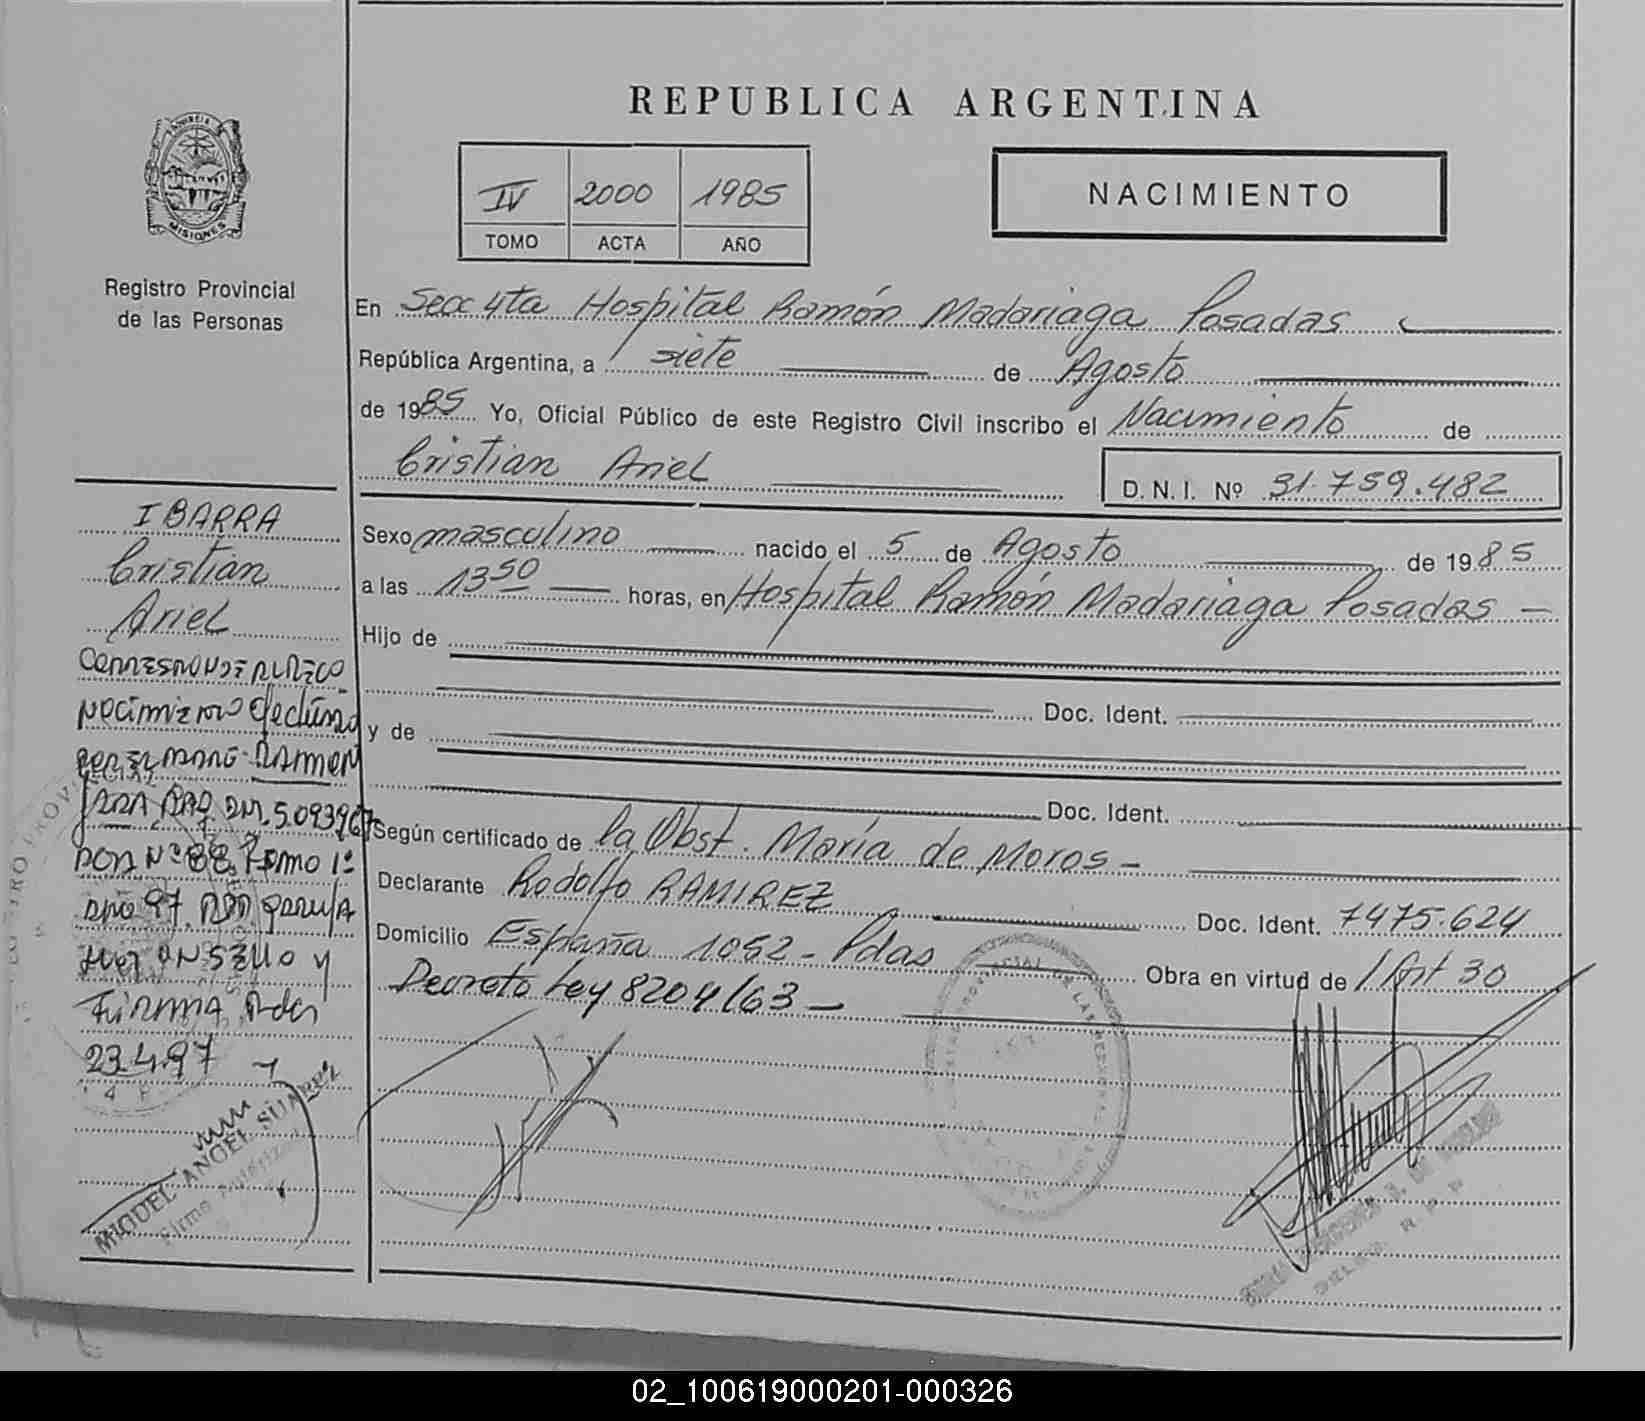 REPUBLICA ARGENTINA
IV 2000 1985
TOMO ACTA AÑO
NACIMIENTO
MISIONES
Registro Provincial
de las Personas
En Secc 4ta Hospital Ramón Madariaga Posadas
República Argentina, a siete de Agosto
de 1985 Yo, Oficial Público de este Registro Civil inscribo el Nacimiento de
Cristian Ariel
D. N. I. Nº 31.759.482
IBARRA
Cristian
Ariel
Sexo masculino nacido el 5 de Agosto de 1985
a las 13 50 horas, en Hospital Ramón Madariaga Posadas -
Hijo de
Doc. Ident.
y de
Doc. Ident.
Según certificado de la Obst. María de Moros -
Declarante Rodolfo RAMIREZ Doc. Ident. 7475.624
Domicilio España 1052 - Pdas Obra en virtud de / Art 30
Decreto Ley 8204/63 -
nacimiento
5.093967
Nº 88 Tomo 1º
97
sello y
Firma
23.4.97
MIGUEL ANGEL SUAREZ
Firma
02_100619000201-000326